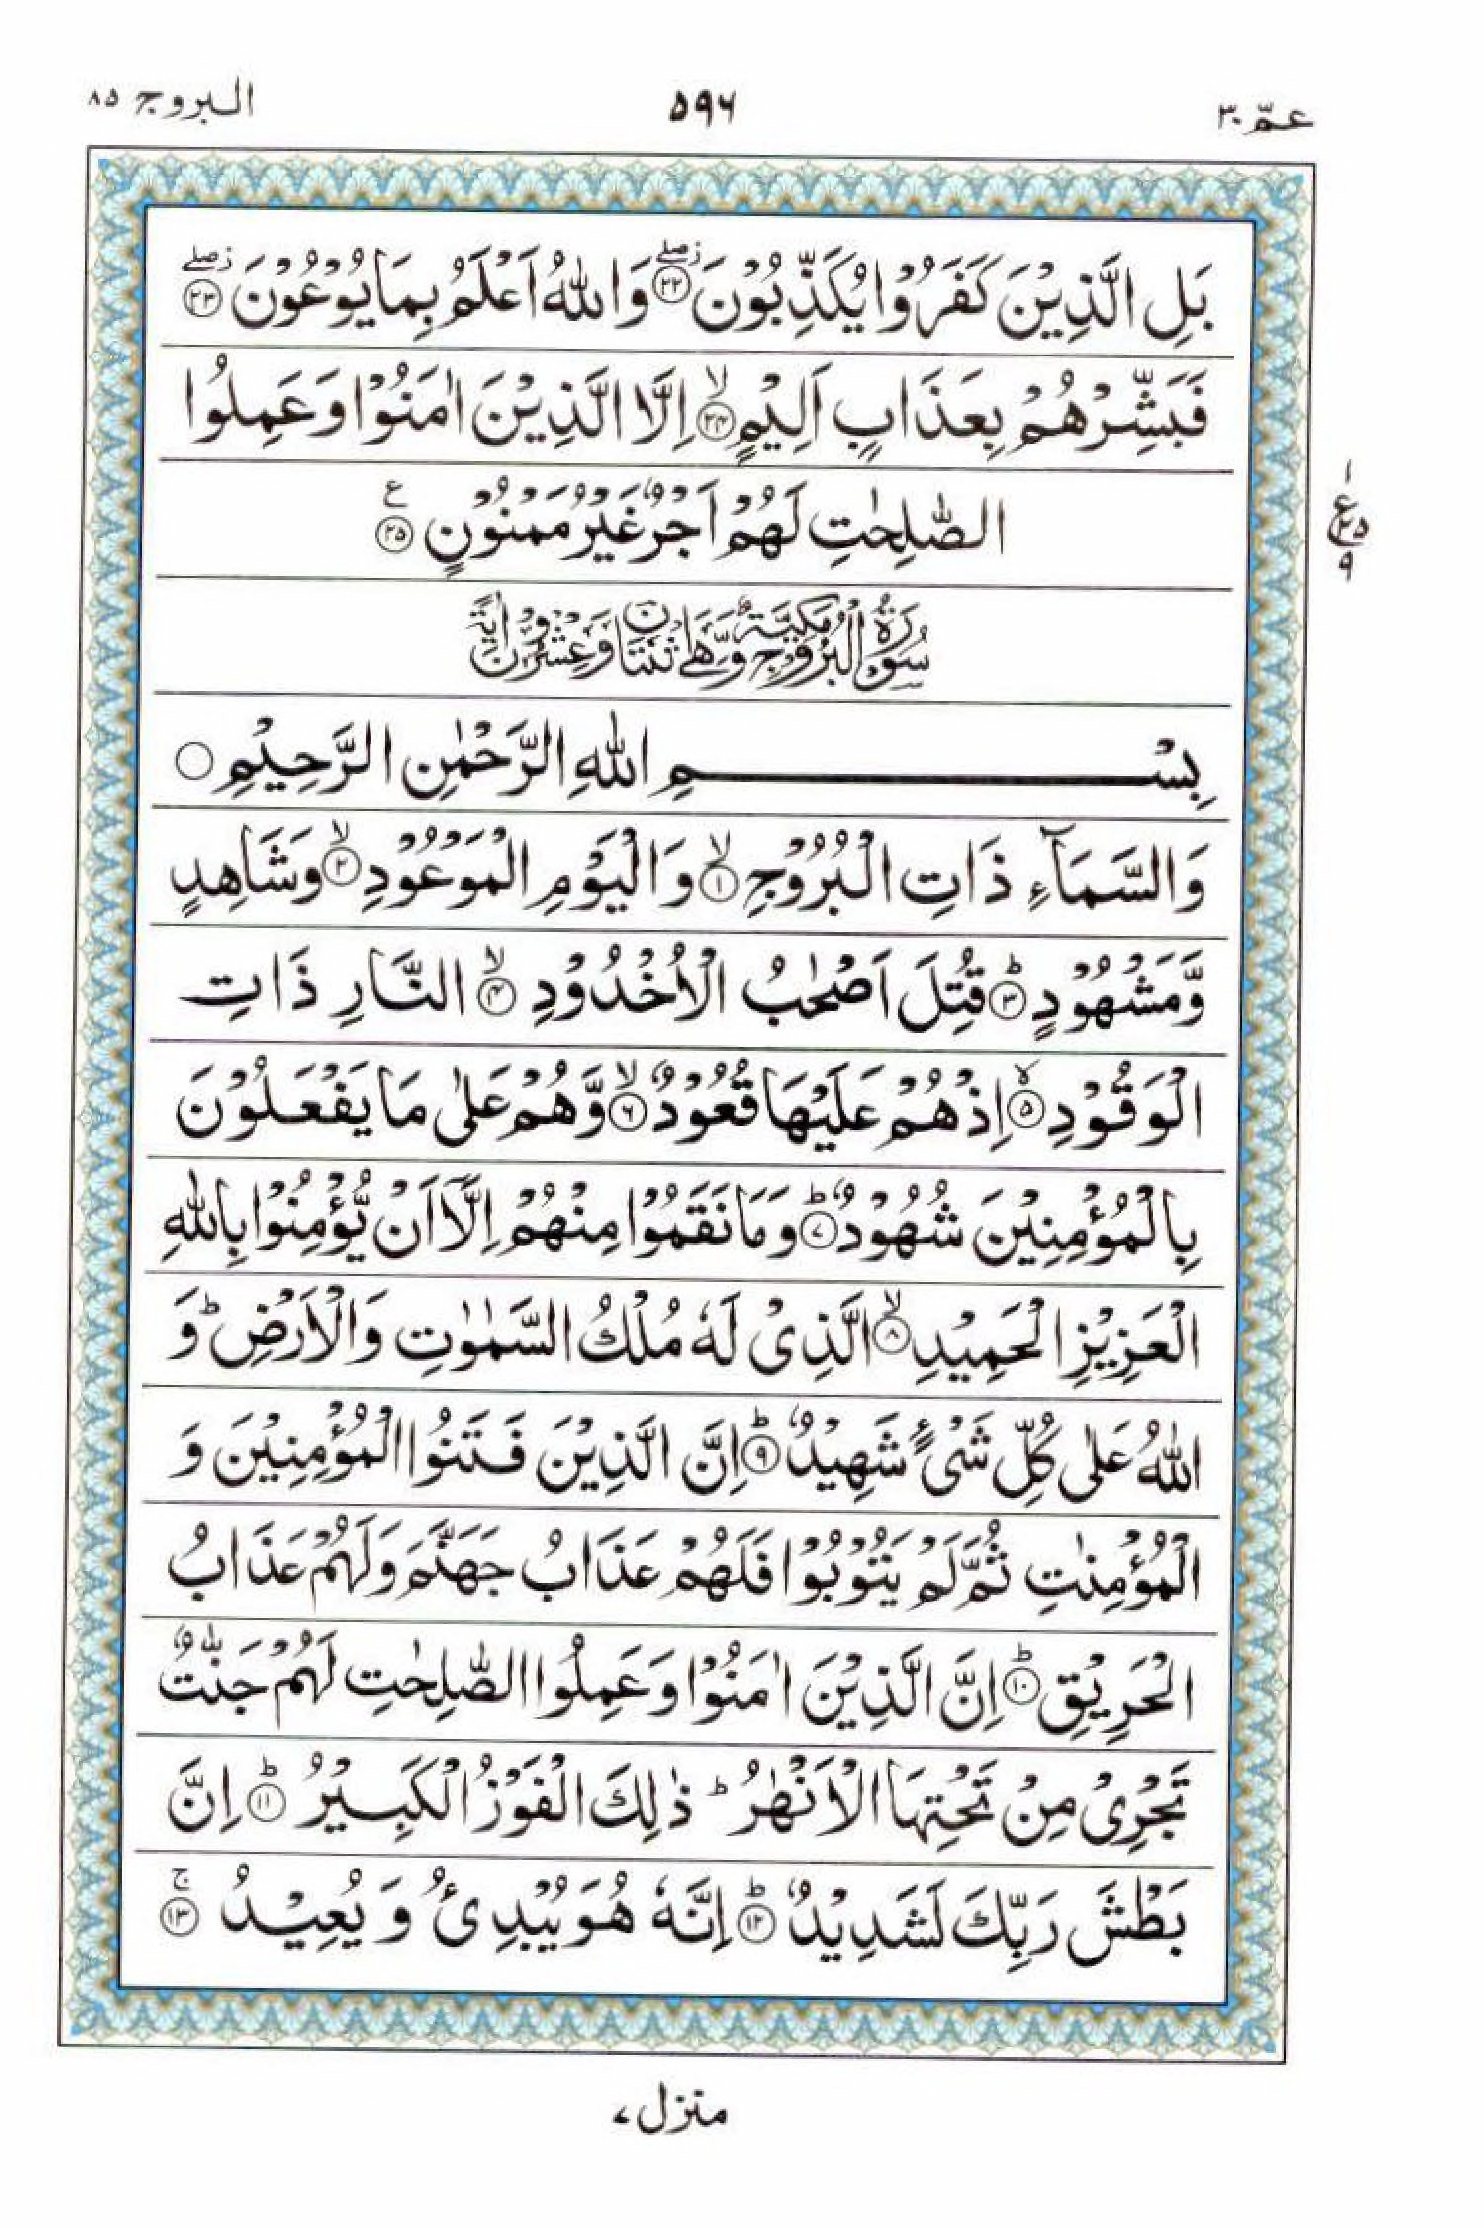 عمّ ٣٠
٥٩٦
البروج ٨٥
بَلِ الَّذِيْنَ كَفَرُوْا يُكَذِّبُوْنَ ۖ۝٢٢ وَاللّٰهُ اَعْلَمُ بِمَا يُوْعُوْنَ ۖ۝٢٣
فَبَشِّرْهُمْ بِعَذَابٍ اَلِيْمٍ ۙ۝٢٤ اِلَّا الَّذِيْنَ اٰمَنُوْا وَعَمِلُوا
الصّٰلِحٰتِ لَهُمْ اَجْرٌ غَيْرُ مَمْنُوْنٍ ۝٢٥ ع
١ ع ٢٥ ٩
سُوْرَةُ الْبُرُوْجِ مَكِّيَّةٌ وَّهِيَ ثِنْتَانِ وَعِشْرُوْنَ اٰيَةً
بِسْمِ اللّٰهِ الرَّحْمٰنِ الرَّحِيْمِ ۝
وَالسَّمَآءِ ذَاتِ الْبُرُوْجِ ۙ۝١ وَالْيَوْمِ الْمَوْعُوْدِ ۙ۝٢ وَشَاهِدٍ
وَّمَشْهُوْدٍ ؕ۝٣ قُتِلَ اَصْحٰبُ الْاُخْدُوْدِ ۙ۝٤ النَّارِ ذَاتِ
الْوَقُوْدِ ۙ۝٥ اِذْ هُمْ عَلَيْهَا قُعُوْدٌ ۙ۝٦ وَّهُمْ عَلٰى مَا يَفْعَلُوْنَ
بِالْمُؤْمِنِيْنَ شُهُوْدٌ ؕ۝٧ وَمَا نَقَمُوْا مِنْهُمْ اِلَّاۤ اَنْ يُّؤْمِنُوْا بِاللّٰهِ
الْعَزِيْزِ الْحَمِيْدِ ۙ۝٨ الَّذِىْ لَهٗ مُلْكُ السَّمٰوٰتِ وَالْاَرْضِ ؕ وَ
اللّٰهُ عَلٰى كُلِّ شَىْءٍ شَهِيْدٌ ؕ۝٩ اِنَّ الَّذِيْنَ فَتَنُوا الْمُؤْمِنِيْنَ وَ
الْمُؤْمِنٰتِ ثُمَّ لَمْ يَتُوْبُوْا فَلَهُمْ عَذَابُ جَهَنَّمَ وَلَهُمْ عَذَابُ
الْحَرِيْقِ ؕ۝١٠ اِنَّ الَّذِيْنَ اٰمَنُوْا وَعَمِلُوا الصّٰلِحٰتِ لَهُمْ جَنّٰتٌ
تَجْرِىْ مِنْ تَحْتِهَا الْاَنْهٰرُ ؕ ذٰلِكَ الْفَوْزُ الْكَبِيْرُ ؕ۝١١ اِنَّ
بَطْشَ رَبِّكَ لَشَدِيْدٌ ؕ۝١٢ اِنَّهٗ هُوَ يُبْدِئُ وَيُعِيْدُ ۚ۝١٣
منزل ٧